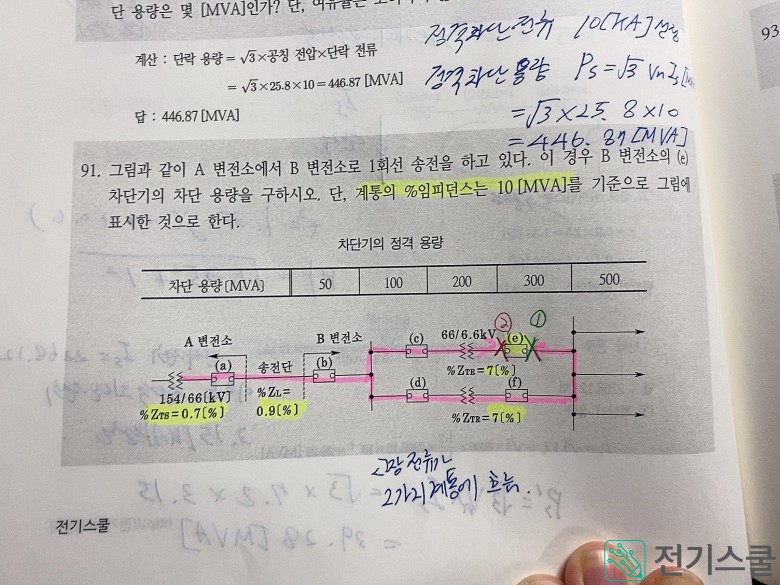 단 용량은 몇 [MVA]인가? 단, 여유율은
계산 : 단락 용량 = √3×공칭 전압×단락 전류
= √3×25.8×10 = 446.87 [MVA]
답 : 446.87 [MVA]
정격차단전류 10[KA] 선정
정격차단용량 Ps=√3 Vn Is [M
=√3×25.8×10
=446.87[MVA]
93
91. 그림과 같이 A 변전소에서 B 변전소로 1회선 송전을 하고 있다. 이 경우 B 변전소의 (e)
차단기의 차단 용량을 구하시오. 단, 계통의 %임피던스는 10 [MVA]를 기준으로 그림에
표시한 것으로 한다.
차단기의 정격 용량
차단 용량[MVA] 50 100 200 300 500
A 변전소
B 변전소
(a)
송전단
(b)
(c)
66/6.6kV
②
(e)
①
154/66[kV]
%ZTS=0.7[%]
%ZL=
0.9[%]
%ZTR=7[%]
(d)
(f)
%ZTR=7[%]
고장 전류가
2가지 계통에 흐름.
전기스쿨
= √3 × 7.2 × 3.15
= 39.28 [MVA]
전기스쿨